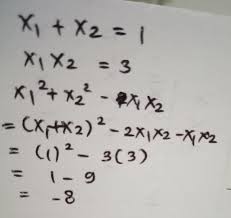 x₁ + x₂ = 1
x₁ x₂ = 3
x₁² + x₂² - x₁ x₂
= (x₁+x₂)² - 2x₁x₂ - x₁x₂
= (1)² - 3(3)
= 1 - 9
= -8